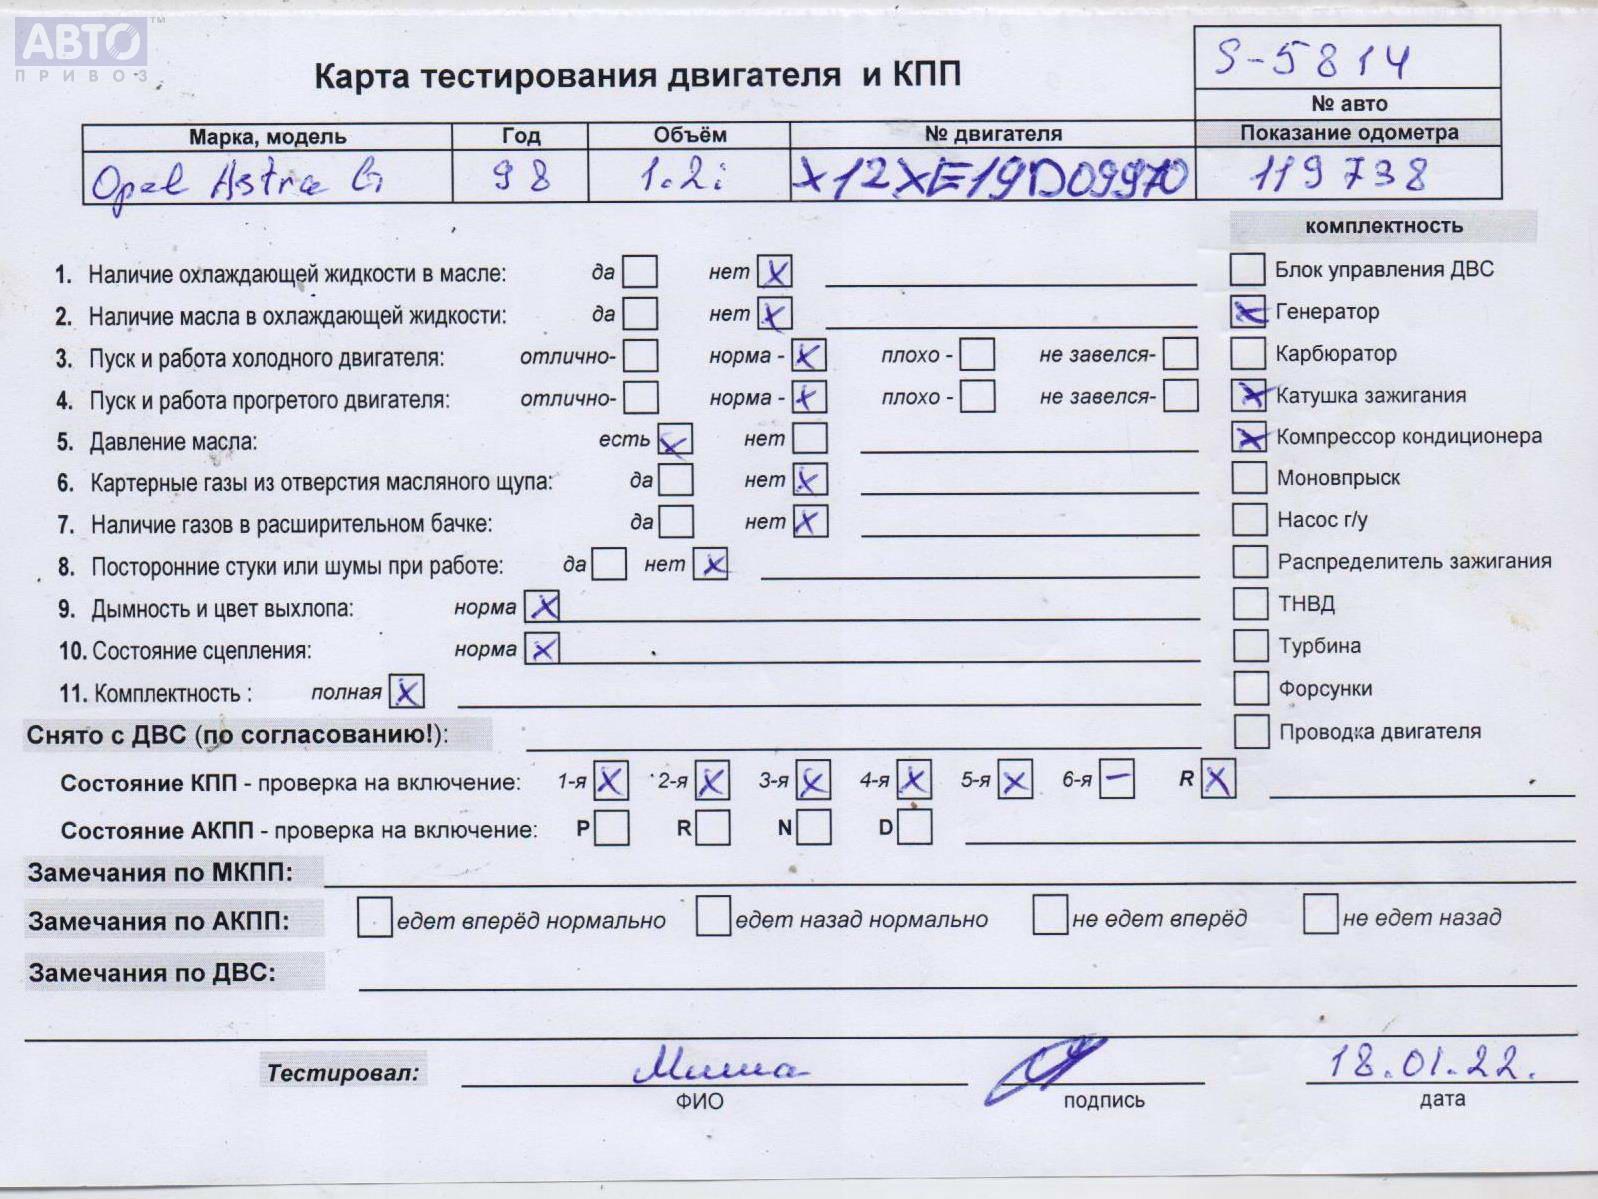 АВТО™
ПРИВОЗ
S-5814
Карта тестирования двигателя и КПП
№ авто
Марка, модель Год Объём № двигателя Показание одометра
Opel Astra G 98 1.2i X12XE19D09970 119738
комплектность
1. Наличие охлаждающей жидкости в масле: да нет X Блок управления ДВС
2. Наличие масла в охлаждающей жидкости: да нет X X Генератор
3. Пуск и работа холодного двигателя: отлично- норма - X плохо - не завелся- Карбюратор
4. Пуск и работа прогретого двигателя: отлично- норма - X плохо - не завелся- X Катушка зажигания
5. Давление масла: есть X нет X Компрессор кондиционера
6. Картерные газы из отверстия масляного щупа: да нет X Моновпрыск
7. Наличие газов в расширительном бачке: да нет X Насос г/у
8. Посторонние стуки или шумы при работе: да нет X Распределитель зажигания
9. Дымность и цвет выхлопа: норма X ТНВД
10. Состояние сцепления: норма X Турбина
11. Комплектность : полная X Форсунки
Снято с ДВС (по согласованию!): Проводка двигателя
Состояние КПП - проверка на включение: 1-я X 2-я X 3-я X 4-я X 5-я X 6-я – R X
Состояние АКПП - проверка на включение: P R N D
Замечания по МКПП:
Замечания по АКПП: едет вперёд нормально едет назад нормально не едет вперёд не едет назад
Замечания по ДВС:
Тестировал: Миша 18.01.22.
ФИО подпись дата